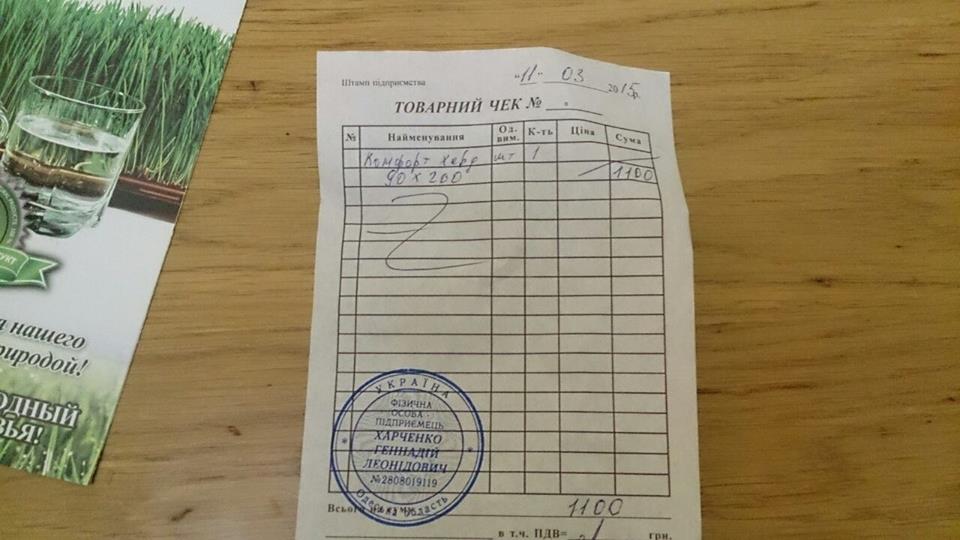 Штамп підприємства
"11" 03 2015р.
ТОВАРНИЙ ЧЕК №
№ Найменування Од. вим. К-ть Ціна Сума
Комфорт шт 1
90 х 200 1100
УКРАЇНА
ФІЗИЧНА
ОСОБА-
ПІДПРИЄМЕЦЬ
ХАРЧЕНКО
ГЕННАДІЙ
ЛЕОНІДОВИЧ
№2808019119
Одеська область
Всього 1100
в т.ч. ПДВ= грн.
УКТ
нашего
риродой!
ОДНЫЙ
ВЬЯ!